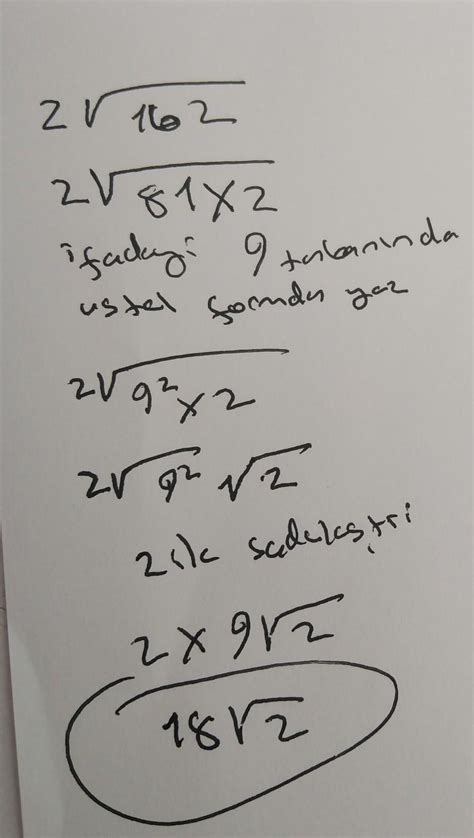 2√162
2√81×2
ifadayi 9 tabanında
ustel formda yaz
2√9²×2
2√9² √2
2 ile sadeleştri
2×9√2
18√2